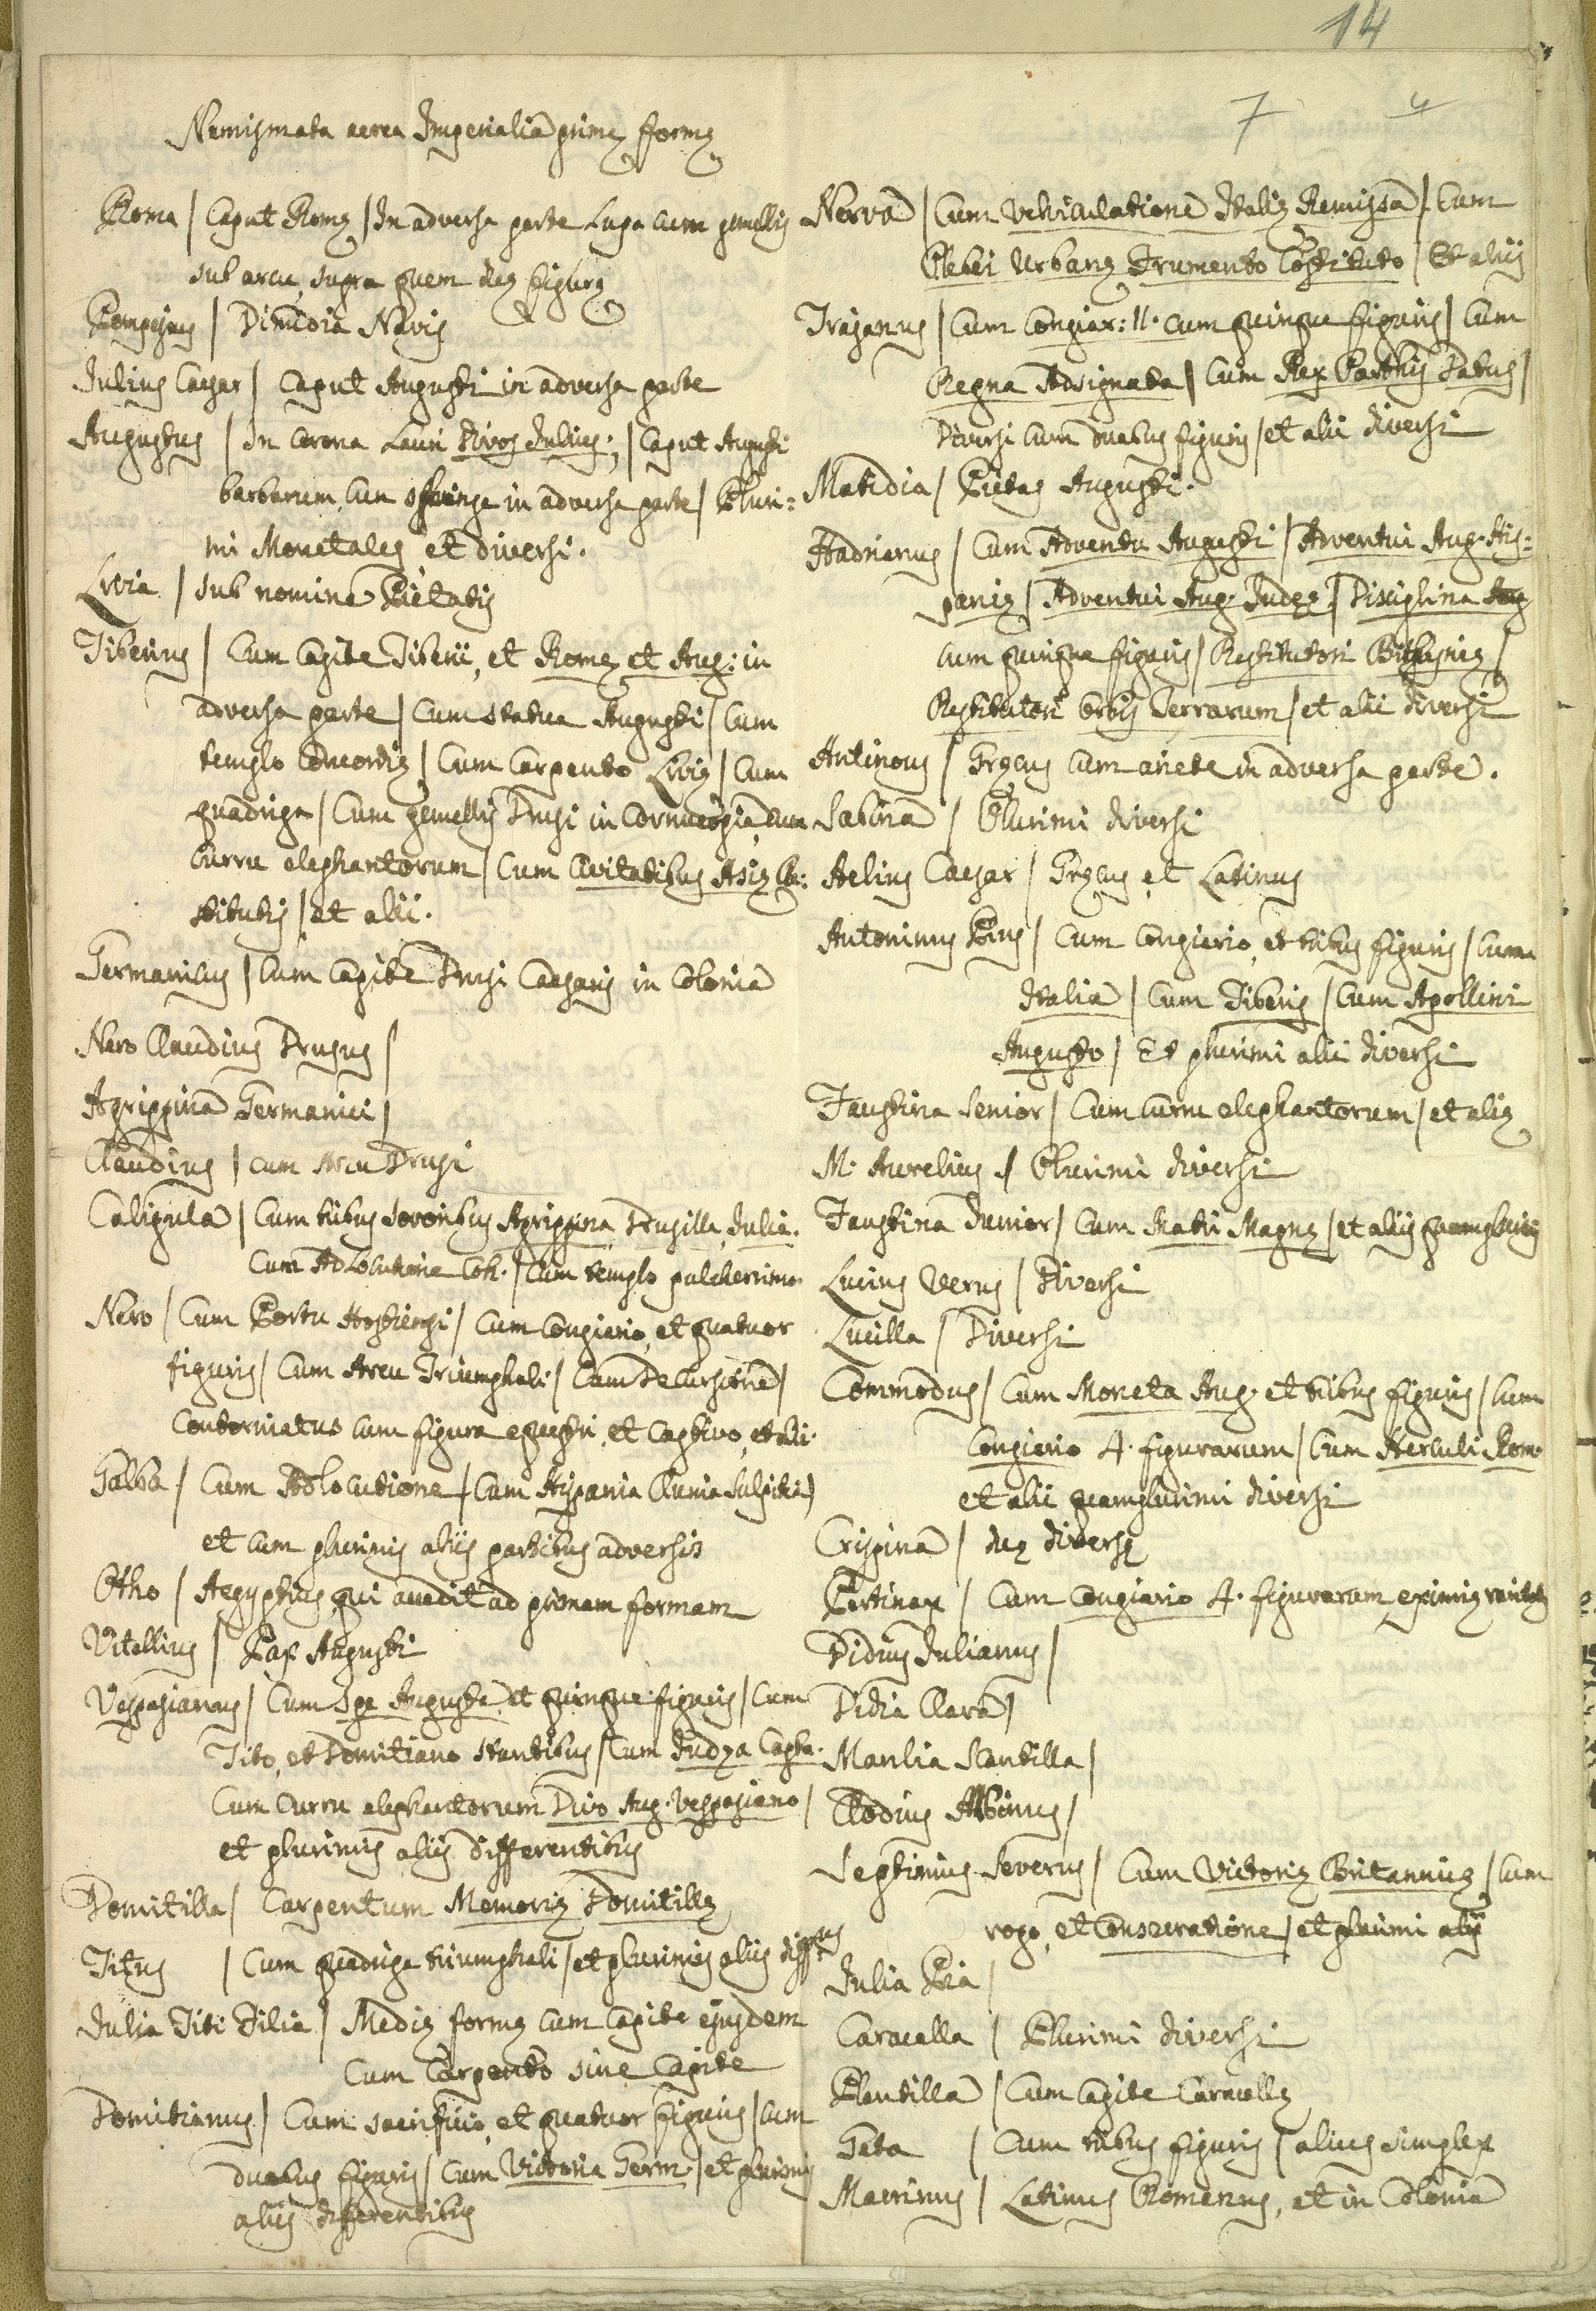 14
7
Numismata aerea Imperialia primę formę
Roma / Caput Romę / In adversa parte Lupa cum gemellis
sub arcu, supra quem duę figurę
Pompejus / Dimidia Navis
Julius Caesar / Caput Augusti in adversa parte
Augustus / In corona Lauri Divos Julius; / Caput Augusti
barbarum, cum sfinge in adversa parte / Pluri:
mi Monetales et diversi.
Livia / sub nomine Pietatis
Tiberius / Cum Capite Tiberii, et Romę et Aug: in
adversa parte / Cum statua Augusti / Cum
templo Concordię / Cum Carpento Livię / Cum
quadriga / Cum gemellis Drusi in Cornucopia, cum
Curru elephantorum / Cum Civitatibus Asię Re:
stitutis / et alii.
Germanicus / Cum Capite Drusi Caesaris in Colonia
Nero Claudius Drusus /
Agrippina Germanici /
Claudius / cum Arcu Drusi
Caligula / Cum tribus sororibus Agrippina, Drusilla, Julia.
Cum Adlocutione Coh. / Cum templo pulcherrimo
Nero / Cum Portu Hostiensi / Cum Congiario, et quatuor
figuris / Cum Arcu Triumphali / Cum Decursione /
Contorniatus cum figura equestri, et Captivo, et alii.
Galba / Cum Adlocutione / Cum Hispania Clunia Sulpitia /
et cum plurimis aliis partibus adversis
Otho / Aegyptius, qui accedit ad primam formam
Vitellius / Pax Augusti
Vespasianus / Cum Spe Augusta, et quinque figuris / Cum
Tito, et Domitiano stantibus / Cum Judęa Capta.
Cum Curru elephantorum Divo Aug. Vespasiano /
et plurimis aliis differentibus
Domitilla / Carpentum Memorię Domitillę
Titus / Cum quadriga triumphali / et plurimis aliis
Julia Titi Filia / Medię formę cum Capite ejusdem
Cum Carpento sine Capite
Domitianus / Cum sacrificio, et quatuor figuris / cum
duabus figuris / Cum Victoria Germ. / et plurimis
aliis differentibus
Nerva / Cum Vehiculatione Italię Remissa / Cum
Plebei Urbanę Frumento Costituto / Et alii
Trajanus / Cum Congiar: II. cum quinque figuris / Cum
Regna Adsignata / Cum Rex Parthis Datus /
Diversi cum duabus figuris / et alii diversi
Matidia / Pietas Augusti.
Hadrianus / Cum Adventu Augusti / Adventui Aug. His:
panię / Adventui Aug. Judęę / Disciplina Aug
cum quinque figuris / Restitutori Bithynię /
Restitutori Orbis Terrarum / et alii diversi
Antinous / Gręcus cum ariete in adversa parte.
Sabina / Plurimi diversi
Aelius Caesar / Gręcus, et Latinus
Antoninus Pius / Cum Congiario, et tribus figuris / Cum
Italia / Cum Tiberis / Cum Apollini
Augusto / Et plurimi alii diversi
Faustina Senior / Cum Curru elephantorum / et alię
M. Aurelius / Plurimi diversi
Faustina Junior / Cum Matri Magnę / et aliis quamplurimis
Lucius Verus / Diversi
Lucilla / Diversi
Commodus / Cum Moneta Aug. et tribus figuris / Cum
Congiario 4. figurarum / Cum Herculi Rom.
et alii quamplurimi diversi
Crispina / duę diversę
Pertinax / Cum Congiario 4. figurarum eximię
Didius Julianus /
Didia Clara /
Manlia Scantilla /
Clodius Albinus /
Septimius Severus / Cum Victorię Britannicę / Cum
rogo, et Consecratione / et plurimi alij
Julia Pia /
Caracalla / Plurimi diversi
Plautilla / Cum Capite Caracallę
Geta / Cum tribus figuris / alius simplex
Macrinus / Latinus Romanus, et in Colonia